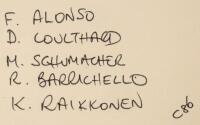 F. ALONSO
D. COULTHARD
M. SCHUMACHER
R. BARRICHELLO
K. RAIKKONEN
C86